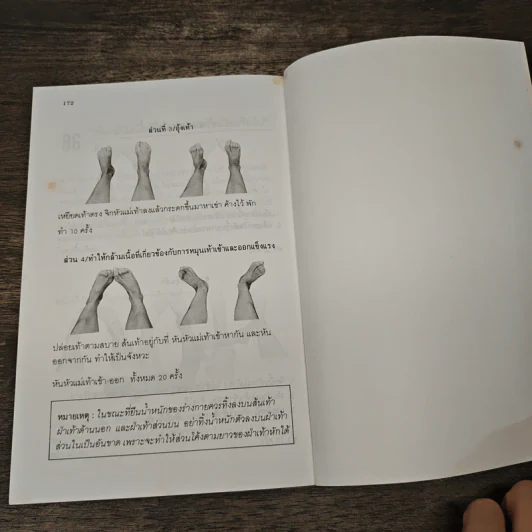 172
ส่วนที่ 3/อุ้งเท้า
เหยียดเท้าตรง จิกหัวแม่เท้าลงแล้วกระดกขึ้นมาหาเข่า ค้างไว้ พัก
ทำ 10 ครั้ง
ส่วน 4/ทำให้กล้ามเนื้อที่เกี่ยวข้องกับการหมุนเท้าเข้าและออกแข็งแรง
ปล่อยเท้าตามสบาย ส้นเท้าอยู่กับที่ หันหัวแม่เท้าเข้าหากัน และหัน
ออกจากกัน ทำให้เป็นจังหวะ
หันหัวแม่เท้าเข้า-ออก ทั้งหมด 20 ครั้ง
หมายเหตุ : ในขณะที่ยืนน้ำหนักของร่างกายควรทิ้งลงบนส้นเท้า
ฝ่าเท้าด้านนอก และฝ่าเท้าส่วนบน อย่าทิ้งน้ำหนักตัวลงบนฝ่าเท้า
ส่วนในเป็นอันขาด เพราะจะทำให้ส่วนโค้งตามยาวของฝ่าเท้าหักได้